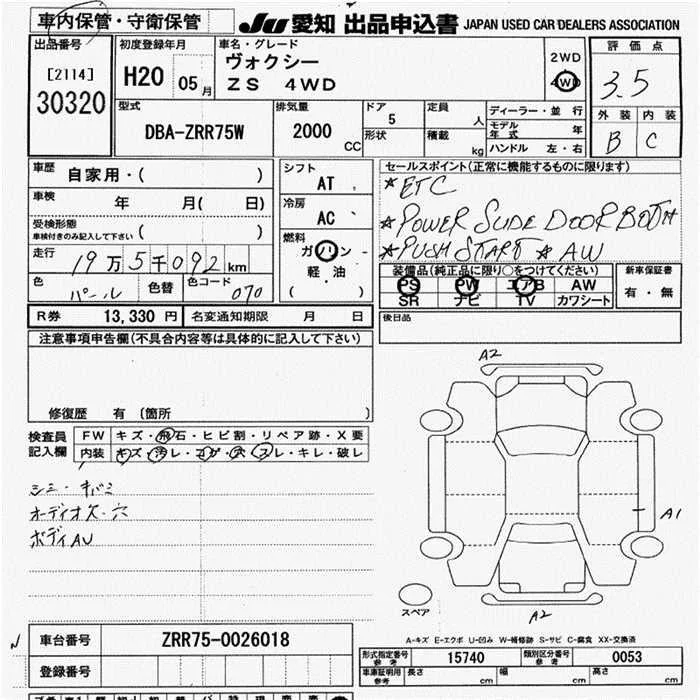 車内保管・守衛保管
JU 愛知 出品申込書 JAPAN USED CAR DEALERS ASSOCIATION
出品番号
[2114]
30320
初度登録年月
H20 05月
車名・グレード
ヴォクシー
ZS 4WD
2WD
4WD
評価点
3.5
外装 内装
B C
型式
DBA-ZRR75W
排気量
2000 CC
ドア
5
形状
定員 人
積載 kg
ディーラー・並行
モデル年式 年
ハンドル 左・右
車歴 自家用・( )
車検 年 月( 日)
受検形態
車検付きのみ記入して下さい ( )
走行 19万5千092km
色 パール 色替 色コード 070
シフト
AT
冷房
AC
燃料
ガソリン
軽・油
( )
セールスポイント(正常に機能するものに限ります)
★ETC
★POWER SLIDE DOOR BOTH
★PUSH START ★AW
装備品(純正品に限り○をつけてください)
PS PW エアB AW
SR ナビ TV カワシート
新車保証書
有・無
R券 13,330円 名変通知期限 月 日
後日品
注意事項申告欄(不具合内容等は具体的に記入して下さい)
修復歴 有(箇所 )
検査員
記入欄
FW キズ・飛石・ヒビ割・リペア跡・X要
内装 キズ・汚レ・コゲ・穴・スレ・キレ・破レ
シミ・キバミ
オーディオ欠・穴
ボディAU
A2
A1
A2
スペア
A-キズ E-エクボ U-凹み W-補修跡 S-サビ C-腐食 XX-交換済
N
車台番号 ZRR75-0026018
登録番号
型式指定番号 参考 15740 類別区分番号 参考 0053
車庫証明用 参考 長さ cm 幅 cm 高さ cm